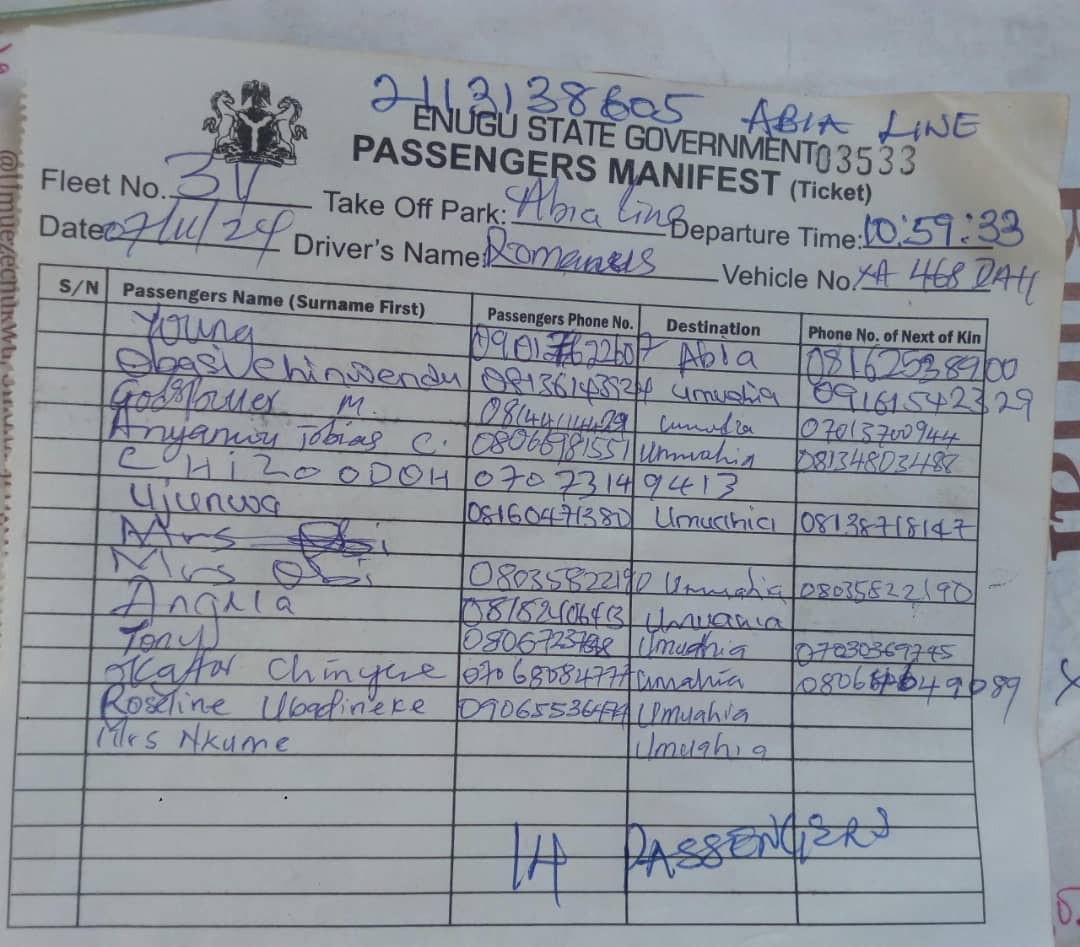 2113138605 ABIA LINE
ENUGU STATE GOVERNMENT 03533
PASSENGERS MANIFEST (Ticket)
Fleet No. 3V Take Off Park: Abia Line Departure Time: 10:59:33
Date 07/11/24 Driver's Name: Romanus Vehicle No. XA 468 DAH
S/N Passengers Name (Surname First) Passengers Phone No. Destination Phone No. of Next of Kin
Young Abia 08162538900
Obasi Chinwendu 08136143524 Umuahia 09161542329
Godspower M. 07013700944
Anyanwu Tobias C. 08066981551 Umuahia 08134803488
CHIZOO ODOH 0707 2314 9413
Ujunwa 08160471380 Umuahia 08138718147
Mrs Obi
Mrs Obi 08035822190 Umuahia 08035822190
Angela Umuahia
Tony Umuahia 07030369745
Okafor Chinyere Umuahia
Roseline Ubadineke Umuahia
Mrs Nkume Umuahia
14 PASSENGERS